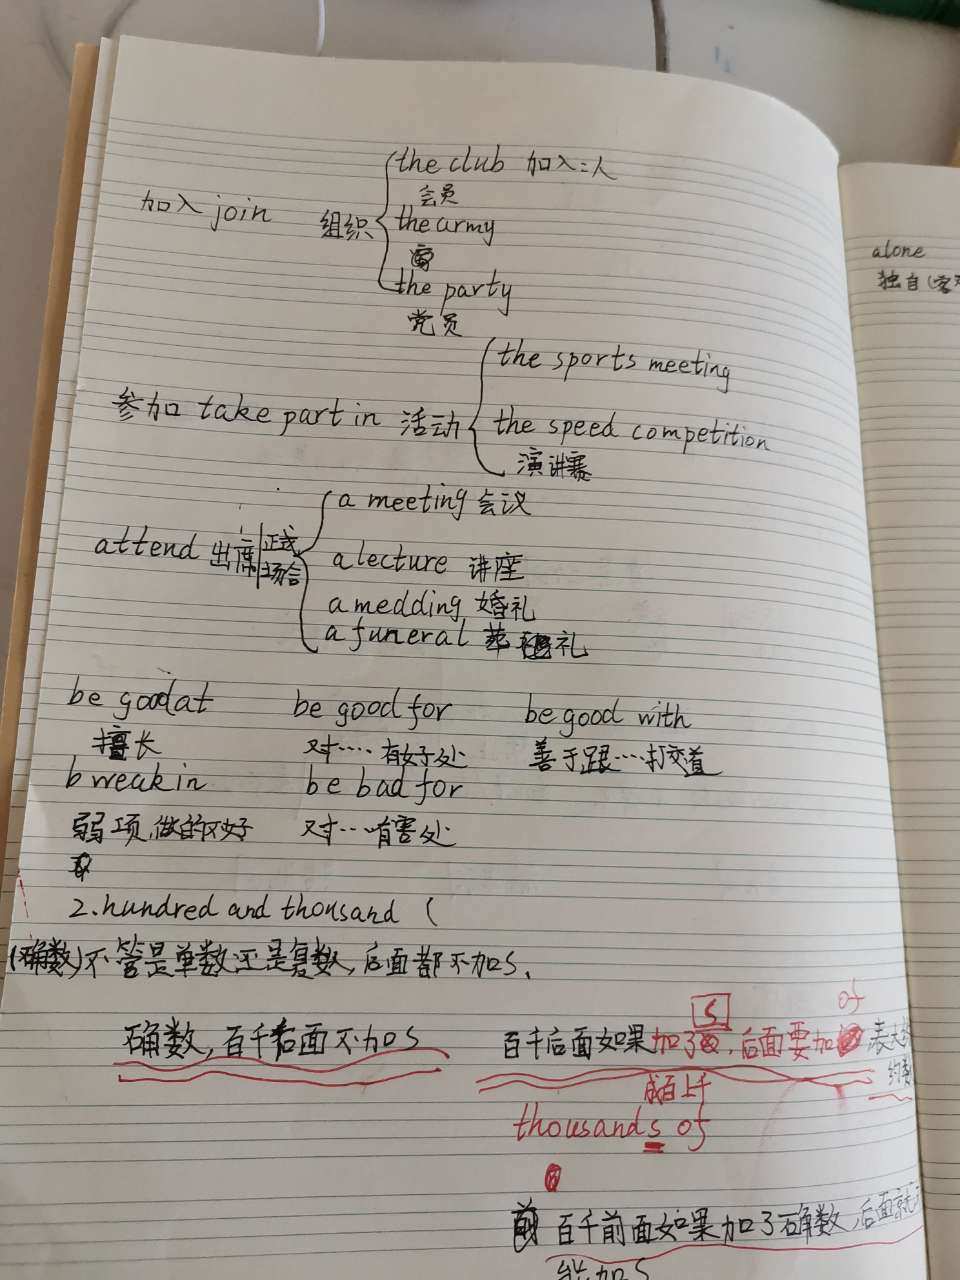 the club 加入二人
会员
加入 join 组织 the army
the party
党员
the sports meeting
参加 take part in 活动 the speed competition
演讲赛
a meeting 会议
attend 出席 正式场合
a lecture 讲座
a medding 婚礼
a funeral 葬礼
be good at be good for be good with
擅长 对…… 有好处 善于跟…打交道
b weak in be bad for
弱项,做的不好 对…有害处
2.hundred and thousand (
(确数)不管是单数还是复数,后面都不加S.
确数,百千后面不加S
百千后面如果加了S,后面要加of 表大
约数
成百上千
thousands of
百千前面如果加了确数,后面就
能加S
alone
独自(客